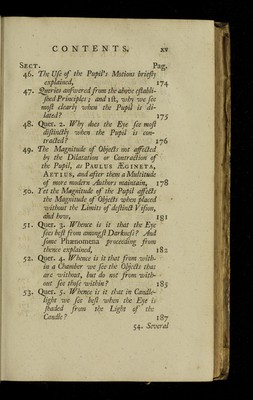 CONTENTS. xv
SECT. Pag.
46. The Use of the Pupil's Motions briefly
explained, 174
47. Queries answered from the above establi-
shed Principles; and 1st, why we see
most clearly when the Pupil is di-
lated? 175
48. Quer. 2. Why does the Eye see most
distinctly when the Pupil is con-
tracted? 176
49. The Magnitude of Objects not affected
by the Dilatation or Contraction of
the Pupil, as PAULUS ÆGINETA,
AETIUS, and after them a Multitude
of more modern Authors maintain, 178
50. Yet the Magnitude of the Pupil affects
the Magnitude of Objects when placed
without the Limits of distinct Vision,
and how, 181
51. Quer. 3. Whence is it that the Eye
sees best from amongst Darkness? And
some Phænomena proceeding from
thence explained, 182
52. Quer. 4. Whence is it that from with-
in a Chamber we see the Objects that
are without, but do not from with-
out see those within? 185
53. Quer. 5. Whence is it that in Candle-
light we see best when the Eye is
shaded from the Light of the
Candle? 187
54. Several